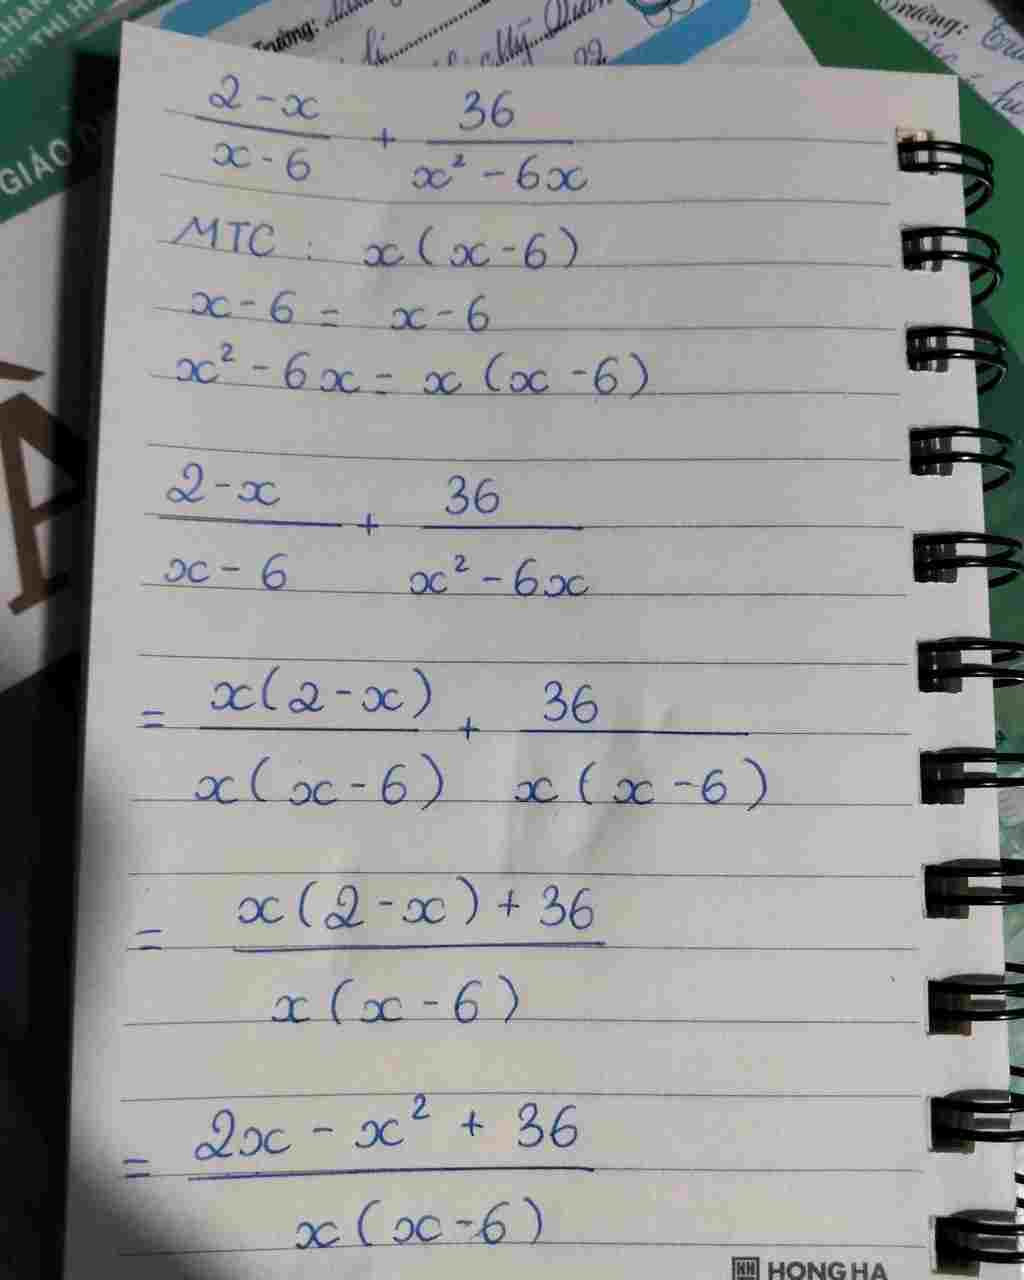 Trường:
Trường:
GIÁO
2-x/x-6 + 36/x²-6x
MTC: x(x-6)
x-6 = x-6
x²-6x = x(x-6)
2-x/x-6 + 36/x²-6x
= x(2-x)/x(x-6) + 36/x(x-6)
= x(2-x)+36/x(x-6)
= 2x-x²+36/x(x-6)
HONG HA